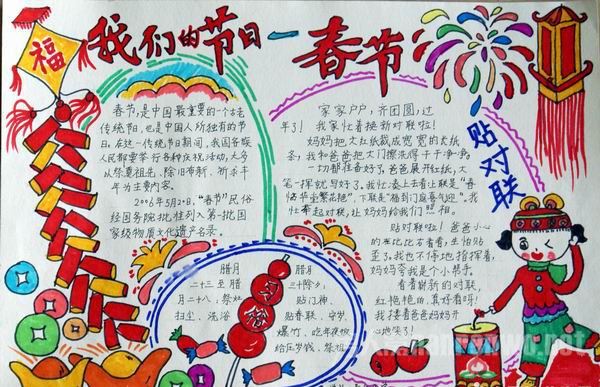 福
我们的节日－春节
春节，是中国最重要的一个古老
传统节日，也是中国人所独有的节
日。在这一传统节日期间，我国各族
人民都要举行各种庆祝活动，大多
以祭奠祖先、除旧布新、祈求丰
年为主要内容。
2006年5月20日，“春节”民俗
经国务院批准列入第一批国
家级物质文化遗产名录。
家家户户，齐团圆，过
年了！我家忙着换新对联啦！
妈妈把大红纸裁成宽宽的长纸
条，我和爸爸把大门擦洗得干干净净，
一切都准备好了。爸爸展开红纸，大
笔一挥就写好了。我忙凑上去看上联是“春
临华堂繁花艳”，下联是“福到门庭喜气迎”。我
忙举起对联，让妈妈给我们照相。
贴对联
贴对联啦！爸爸小心
的在比比右看看，生怕贴
歪了。我也不停地指挥着，
妈妈夸我是个小帮手。
看着崭新的对联，
红艳艳的，真好看呀！
我搂着爸爸妈妈开
心地笑了！
腊月
二十三至腊
月二十八：祭灶
扫尘、洗浴
风俗
腊月
三十除夕：
贴门神、
贴春联、守岁、
爆竹、吃年夜饭
给压岁钱、祭祖